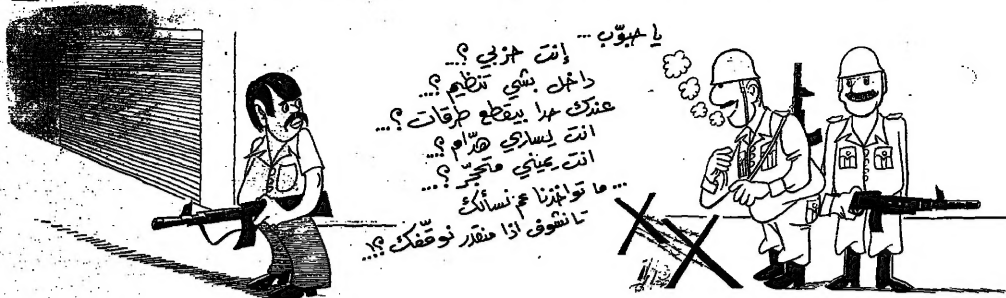 يا حبوّب ...
إنت حزبي ؟...
داخل بشي تنظيم ؟...
عندك حدا بيقطع طرقات ؟...
انت يساري هدّام ؟...
انت يميني متحجّر ؟...
... ما تواخذنا عم نسألك
تانشوف اذا منقدر نوقّفك ؟!...